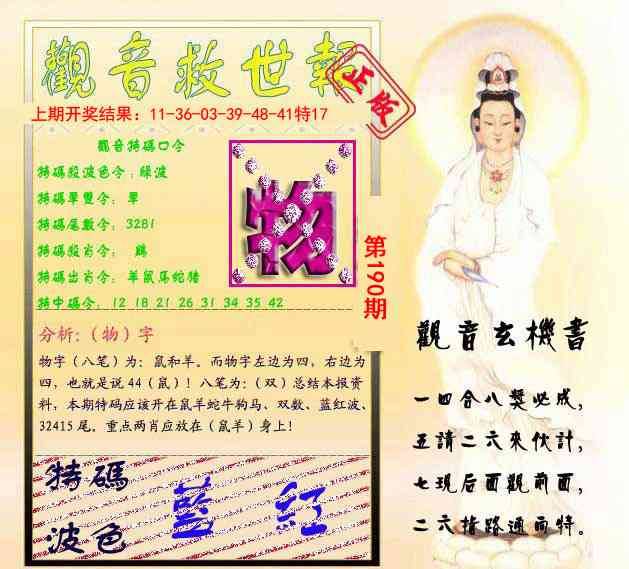 觀音救世報
正版
上期开奖结果：11-36-03-39-48-41特17
觀音特碼口令
特碼殺波色令：綠波
特碼單雙令：單
特碼尾數令：3281
特碼殺肖令：鷄
特碼出肖令：羊鼠馬蛇猪
特中碼令：12 18 21 26 31 34 35 42
物
第190期
分析:（物）字
物字（八笔）为：鼠和羊。而物字左边为四，右边为
四，也就是说44（鼠）！八笔为：（双）总结本报资
料，本期特码应该开在鼠羊蛇牛狗马、双数、蓝红波、
32415尾。重点两肖应放在（鼠羊）身上！
特碼
波色
藍 紅
觀音玄機書
一四合八獎必成，
五請二六來伙計，
七现后面觀前面，
二六指路通而特。